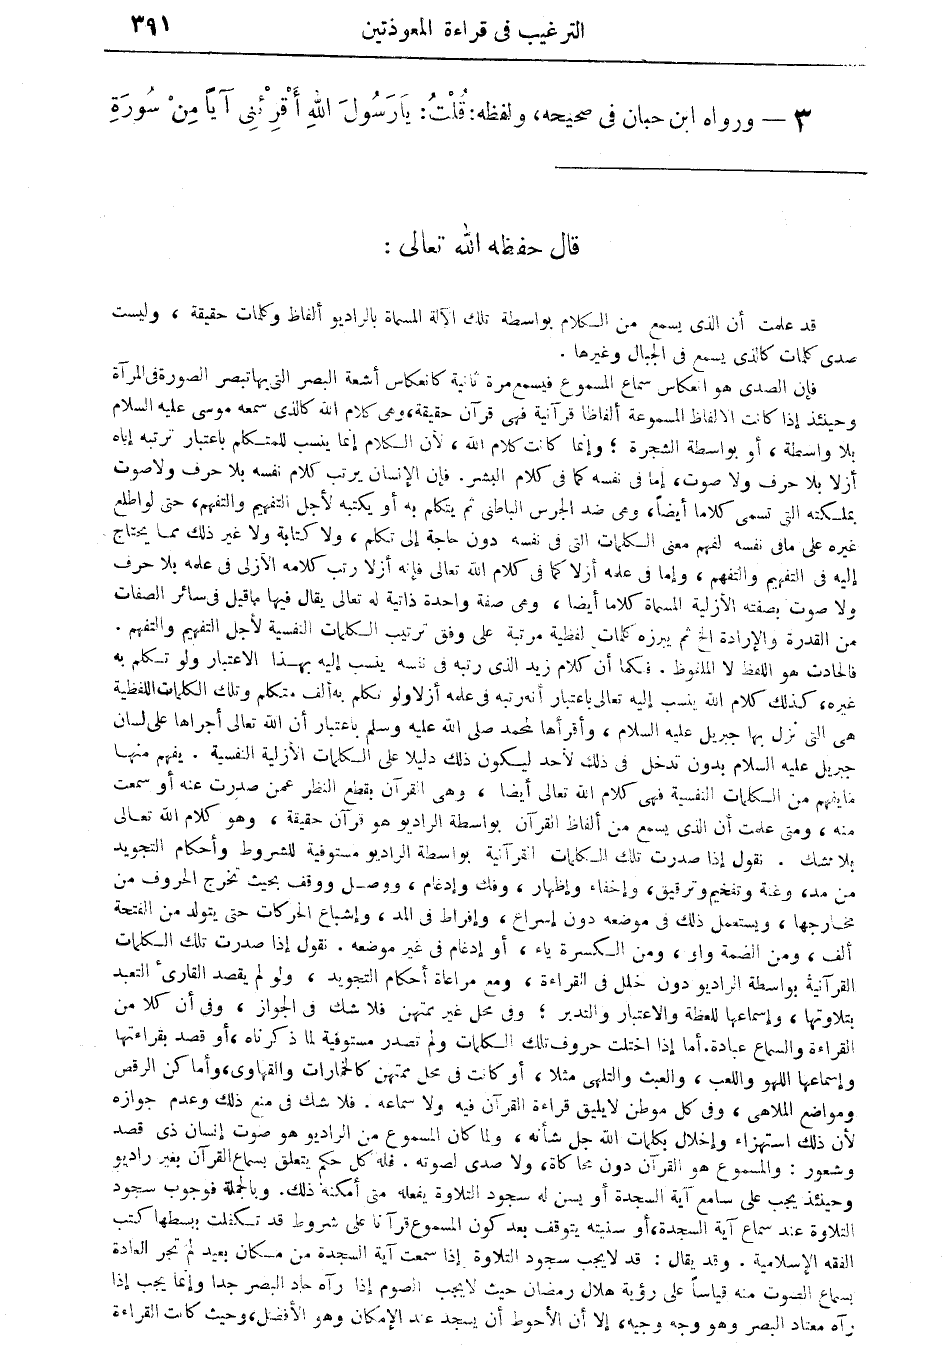 الترغيب فى قراءة المعوذتين ٣٩١
٣ — ورواه ابن حبان فى صحيحه، ولفظه: قُلْتُ: يَارَسُولَ اللهِ أَقْرِئْنِى آيًا مِنْ سُورَةِ
قال حفظه الله تعالى :
قد علمت أن الذى يسمع من الكلام بواسطة تلك الآلة المسماة بالراديو ألفاظ وكلمات حقيقة ، وليست
صدى كلمات كالذى يسمع فى الجبال وغيرها .
فإن الصدى هو انعكاس سماع المسموع فيسمع مرة ثانية كانعكاس أشعة البصر التى بها تبصر الصورة فى المرآة
وحينئذ إذا كانت الالفاظ المسموعة ألفاظا قرآنية فهى قرآن حقيقة، وهى كلام الله كالذى سمعه موسى عليه السلام
بلا واسطة ، أو بواسطة الشجرة ؛ وإنما كانت كلام الله ، لأن الكلام إنما ينسب للمتكلم باعتبار ترتبه إياه
أزلا بلا حرف ولا صوت، إما فى نفسه كما فى كلام البشر. فإن الإنسان يرتب كلام نفسه بلا حرف ولاصوت
بملكته التى تسمى كلاما أيضاً، وهى ضد الخرس الباطنى ثم يتكلم به أو يكتبه لأجل التفهيم والتفهم، حتى لو اطلع
غيره على مافى نفسه لفهم معنى الكلمات التى فى نفسه دون حاجة إلى تكلم ، ولا كتابة ولا غير ذلك مما يحتاج
إليه فى التفهيم والتفهم ، وإما فى علمه أزلا كما فى كلام الله تعالى فإنه أزلا رتب كلامه الأزلى فى علمه بلا حرف
ولا صوت بصفته الأزلية المسماة كلاما أيضا ، وهى صفة واحدة ذاتية له تعالى يقال فيها ماقيل فى سائر الصفات
من القدرة والإرادة الخ ثم يبرزه كلمات لفظية مرتبة على وفق ترتيب الكلمات النفسية لأجل التفهيم والتفهم .
فالحادث هو اللفظ لا الملفوظ . فكما أن كلام زيد الذى رتبه فى نفسه ينسب إليه بهذا الاعتبار ولو تكلم به
غيره، كذلك كلام الله ينسب إليه تعالى باعتبار أنه رتبه فى علمه أزلا ولو تكلم به ألف متكلم وتلك الكلمات اللفظية
هى التى نزل بها جبريل عليه السلام ، وأقرأها لمحمد صلى الله عليه وسلم باعتبار أن الله تعالى أجراها على لسان
جبريل عليه السلام بدون تدخل فى ذلك لأحد ليكون ذلك دليلا على الكلمات الأزلية النفسية . يفهم منها
مايفهم من الكلمات النفسية فهى كلام الله تعالى أيضا ، وهى القرآن بقطع النظر عمن صدرت عنه أو سمعت
منه ، ومتى علمت أن الذى يسمع من ألفاظ القرآن بواسطة الراديو هو قرآن حقيقة ، وهو كلام الله تعالى
بلا شك . نقول إذا صدرت تلك الكلمات القرآنية بواسطة الراديو مستوفية للشروط وأحكام التجويد
من مد، وغنة وتفخيم وترقيق، وإخفاء وإظهار ، وفك وإدغام ، ووصل ووقف بحيث تخرج الحروف من
مخارجها ، ويستعمل ذلك فى موضعه دون إسراع ، وإفراط فى المد ، وإشباع الحركات حتى يتولد من الفتحة
ألف ، ومن الضمة واو ، ومن الكسرة ياء ، أو إدغام فى غير موضعه . نقول إذا صدرت تلك الكلمات
القرآنية بواسطة الراديو دون خلل فى القراءة ، ومع مراعاة أحكام التجويد ، ولو لم يقصد القارئ التعبد
بتلاوتها ، وإسماعها للعظة والاعتبار والتدبر ؛ وفى محل غير ممتهن فلا شك فى الجواز ، وفى أن كلا من
القراءة والسماع عبادة. أما إذا اختلت حروف تلك الكلمات ولم تصدر مستوفية لما ذكرناه ،أو قصد بقراءتها
وإسماعها اللهو واللعب ، والعبث والتلهى مثلا ، أو كانت فى محل ممتهن كالخمارات والقهاوى، وأماكن الرقص
ومواضع الملاهى ، وفى كل موطن لايليق قراءة القرآن فيه ولا سماعه . فلا شك فى منع ذلك وعدم جوازه
لأن ذلك استهزاء وإخلال بكلمات الله جل شأنه ، ولما كان المسموع من الراديو هو صوت إنسان ذى قصد
وشعور : والمسموع هو القرآن دون محاكاة، ولا صدى لصوته . فله كل حكم يتعلق بسماع القرآن بغير راديو
وحينئذ يجب على سامع آية السجدة أو يسن له سجود التلاوة يفعله متى أمكنه ذلك. وبالجملة فوجوب سجود
التلاوة عند سماع آية السجدة، أو سنيته يتوقف بعد كون المسموع قرآنا على شروط قد تكفلت ببسطها كتب
الفقه الإسلامية . وقد يقال : قد لايجب سجود التلاوة إذا سمعت آية السجدة من مكان بعيد لم تجر العادة
بسماع الصوت منه قياساً على رؤية هلال رمضان حيث لايجب الصوم إذا رآه حاد البصر جدا وإنما يجب إذا
رآه معتاد البصر وهو وجه وجيه، إلا أن الأحوط أن يسجد عند الإمكان وهو الأفضل، وحيث كانت القراءة